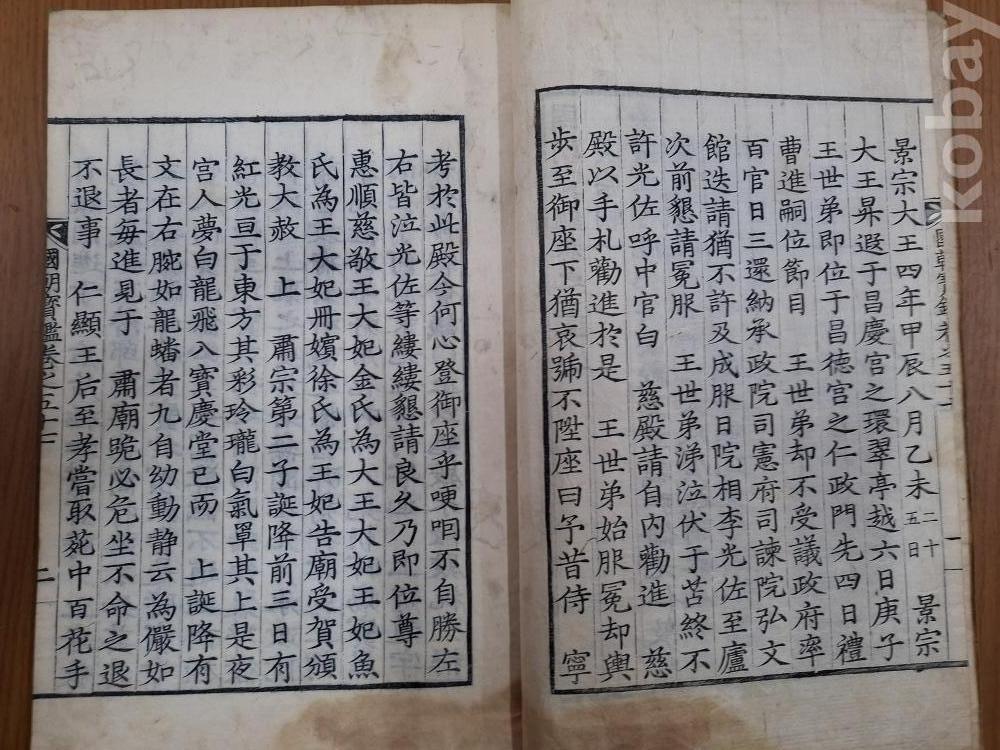 景宗大王四年甲辰八月乙未二十五日 景宗
大王昇遐于昌慶宮之環翠亭越六日庚子
王世弟即位于昌德宮之仁政門先四日禮
曹進嗣位節目 王世弟却不受議政府率
百官日三還納承政院司憲府司諫院弘文
館迭請猶不許及成服日院相李光佐至廬
次前懇請冕服 王世弟涕泣伏于苫終不
許光佐呼中官白 慈殿請自內勸進 慈
殿以手札勸進於是 王世弟始服冕却輿
步至御座下猶哀號不陞座曰予昔侍 寧
考於此殿今何心登御座乎哽咽不自勝左
右皆泣光佐等縷縷懇請良久乃即位尊
惠順慈敬王大妃金氏為大王大妃王妃魚
氏為王大妃冊嬪徐氏為王妃告廟受賀頒
教大赦 上 肅宗第二子誕降前三日有
紅光亘于東方其彩玲瓏白氣罩其上是夜
宮人夢白龍飛入寶慶堂已而 上誕降有
文在右腕如龍蟠者九自幼動静云為儼如
長者每進見于 肅廟跪必危坐不命之退
不退事 仁顯王后至孝嘗取苑中百花手
國朝寶鑑卷之五十
二
kobay